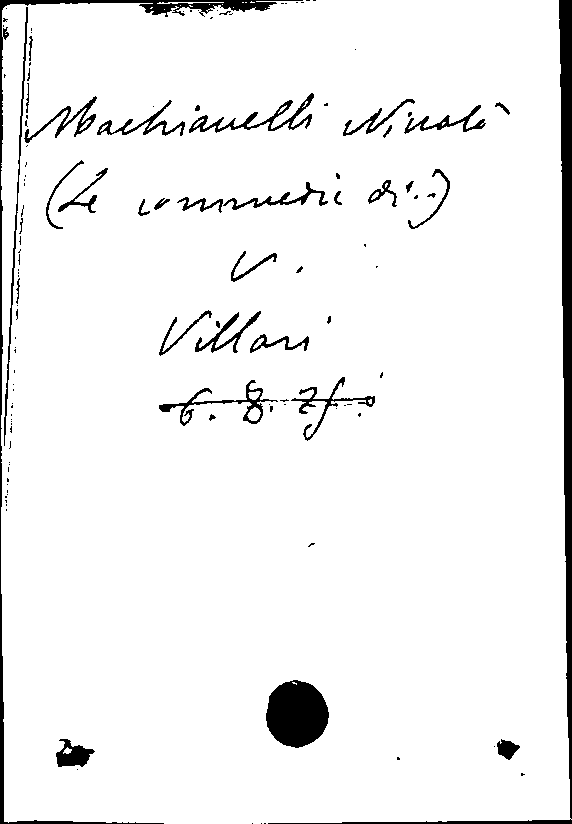 Machiavelli Nicolò
(Le commedie di...)
V.
Villari
6. 8.